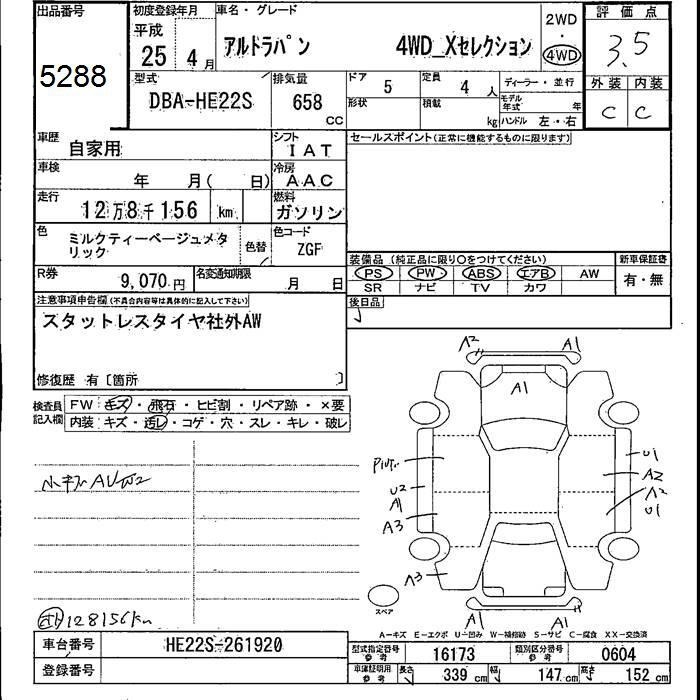 出品番号
5288
初度登録年月
平成
25 4月
車名・グレード
アルトラパン 4WD_Xセレクション
2WD
・
4WD
評価点
3.5
外装 内装
C C
型式
DBA-HE22S
排気量
658
CC
ドア
5
定員
4 人
形状
積載
kg
ディーラー・並行
モデル年式
年
ハンドル 左・右
車歴
自家用
シフト
IAT
車検
年 月( 日)
冷房
AAC
走行
12万8千156 km
燃料
ガソリン
色
ミルクティーベージュメタリック
色替
色コード
ZGF
R券
9,070.円
名変通知期限
月 日
セールスポイント(正常に機能するものに限ります)
装備品 (純正品に限り○をつけてください)
新車保証書
PS PW ABS エアB AW
SR ナビ TV カワ
有・無
後日品
注意事項申告欄(不具合内容等は具体的に記入して下さい)
スタットレスタイヤ社外AW
修復歴 有〔箇所 〕
検査員記入欄
FW キズ・飛石・ヒビ割・リペア跡・×要
内装 キズ・汚レ・コゲ・穴・スレ・キレ・破レ
小キズAUW2
128156km
A2 A1
A1
U2
A1
A3
A3
U1
A2
A2
U1
A1 A1
スペア
A-キズ E-エクボ U-凹み W-補修跡 S-サビ C-腐食 XX-交換済
車台番号
HE22S-261920
登録番号
型式指定番号
参考
16173
類別区分番号
参考
0604
車庫証明用
参考
長さ 339 cm
幅 147 cm
高さ 152 cm